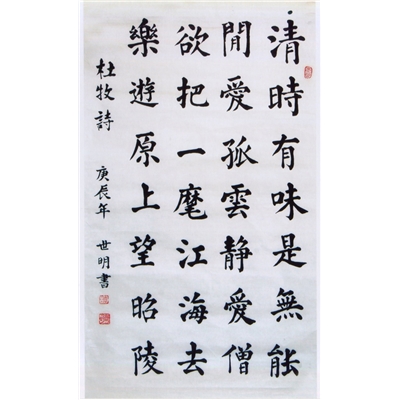 清時有味是無能
閒愛孤雲静愛僧
欲把一麾江海去
樂遊原上望昭陵
杜牧詩
庚辰年 世明書